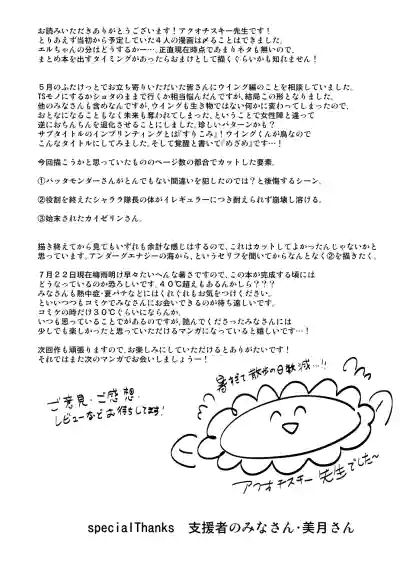 お読みいただきありがとうございます！アクオチスキー先生です！
とりあえず当初から予定していた４人の漫画は〆ることはできました。
エルちゃんの分はどうするかー…。正直現時点であまりネタも無いので、
まとめ本を出すタイミングがあったらおまけとして描くぐらいかも知れません！
５月のふたけっとでお立ち寄りいただいた皆さんにウイング編のことを相談していました。
TSモノにするかショタのままで行くか相当悩んだんですが、結局この形となりました。
他のみなさんも含めなんですが、ウイングも生き物ではない何かに変わってしまったので、
おとなになることもなく未来も奪われてしまった、ということで女性陣と違って
逆におちんちんを退化させることにしました。珍しいパターンかも？
サブタイトルのインプリンティングとは『すりこみ』！ウイングくんが鳥なので
こんなタイトルにしてみました。そして覚醒と書いて『めざめ』です…！
今回描こうかと思っていたもののページ数の都合でカットした要素。
①バッタモンダーさんがとんでもない間違いを犯したのでは？と後悔するシーン。
②役割を終えたシャララ隊長の体がイレギュラーにつき耐えられず崩壊し溶ける。
③始末されたカイゼリンさん。
描き終えてから見てもいずれも余計な感じはするので、これはカットしてよかったんじゃないかと
思っています。アンダーグエナジーの海から、というセリフを聞いてからなんとなく②を描きたく。
７月２２日現在梅雨明け早々たいへんな暑さですので、この本が完成する頃には
どうなっているのか恐ろしいです。４０℃超えもあるんかしら？？？
みなさんも熱中症・夏バテなどにはくれぐれもお気をつけください。
といいつつもコミケでみなさんにお会いできるのが待ち遠しいです。
コミケの時だけ３０℃ぐらいにならんか。
いつも思っていることでがあるのですが、読んでくださったみなさんには
少しでも楽しかったと思っていただけるマンガになっていると嬉しいです…！
次回作も頑張りますので、お楽しみにしていただけるとありがたいです！
それではまた次のマンガでお会いしましょうー！
暑すぎて散歩の日数減…!!
ご意見・ご感想・
レビューなどお待ちしてます!
アクオチスキー先生でした〜
specialThanks　支援者のみなさん・美月さん